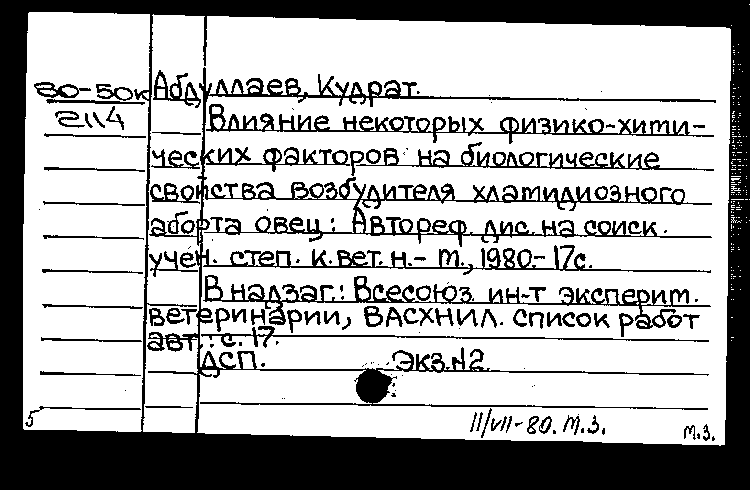 80-50к Абдуллаев, Кудрат.
2114 Влияние некоторых физико-хими-
ческих факторов на биологические
свойства возбудителя хламидиозного
аборта овец: Автореф. дис. на соиск.
учен. степ. к. вет. н. - М., 1980. - 17с.
В надзаг.: Всесоюз. ин-т эксперим.
ветеринарии, ВАСХНИЛ. Список работ
авт.: с. 17.
ДСП. Экз. N2.
5 11/VII-80. М.З. М.З.